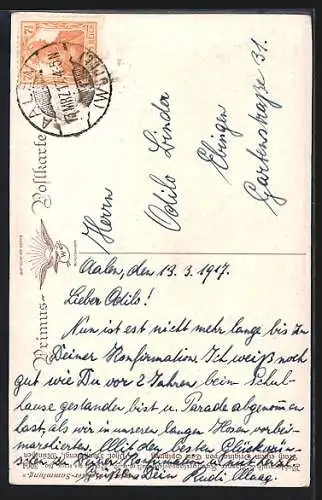 Primus-Postkarte
AALEN
13 MRZ 17 4-5 N
(WÜRTT)
7½
Herrn
Otilo Linder
Ebingen
Gartenstraße 31.
Aalen, den 13. 3. 1917.
Lieber Otilo!
Nun ist es nicht mehr lange bis zu
Deiner Konfirmation. Ich weiß noch
gut wie Du vor 2 Jahren beim Schul-
hause gestanden bist u. Parade abgenommen
hast, als wir in unseren langen Hosen, vorbei-
marschierten. Mit den besten Glückwün-
schen zu Deiner Konfirmation
grüßt Dein Rudi Maag.